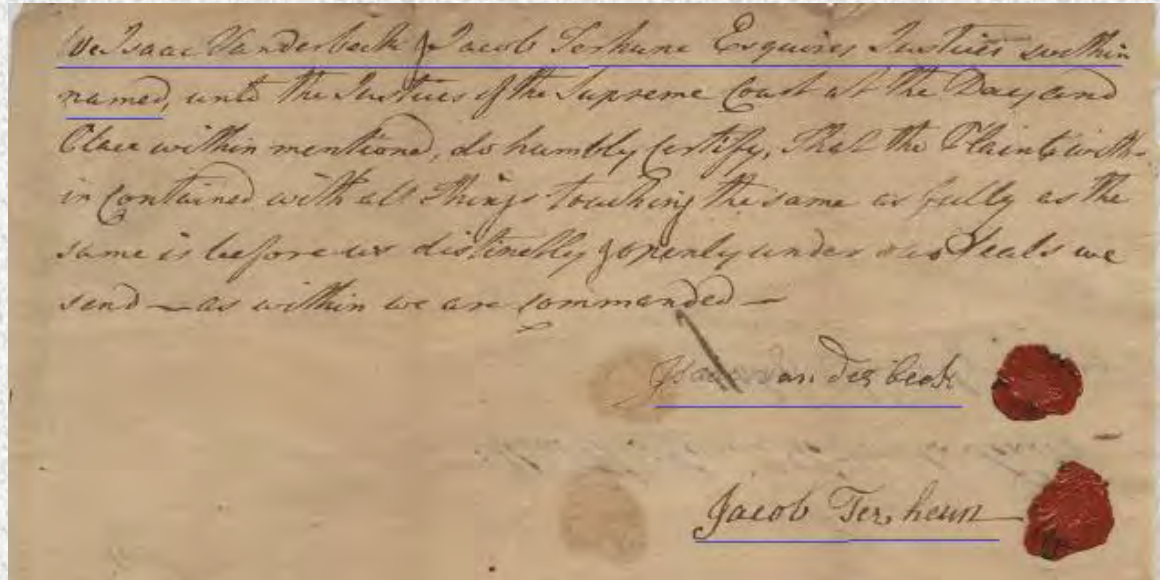 We Isaac Vanderbeck & Jacob Terhune Esquires Justices within
named, unto the Justices of the Supreme Court at the Day and
Place within mentioned, do humbly Certify, That the Plaint with-
in Contained with all things touching the same as fully as the
same is before us distinctly & openly under our Seals we
send — as within we are commanded —
Isaac van der beek
Jacob Ter heun